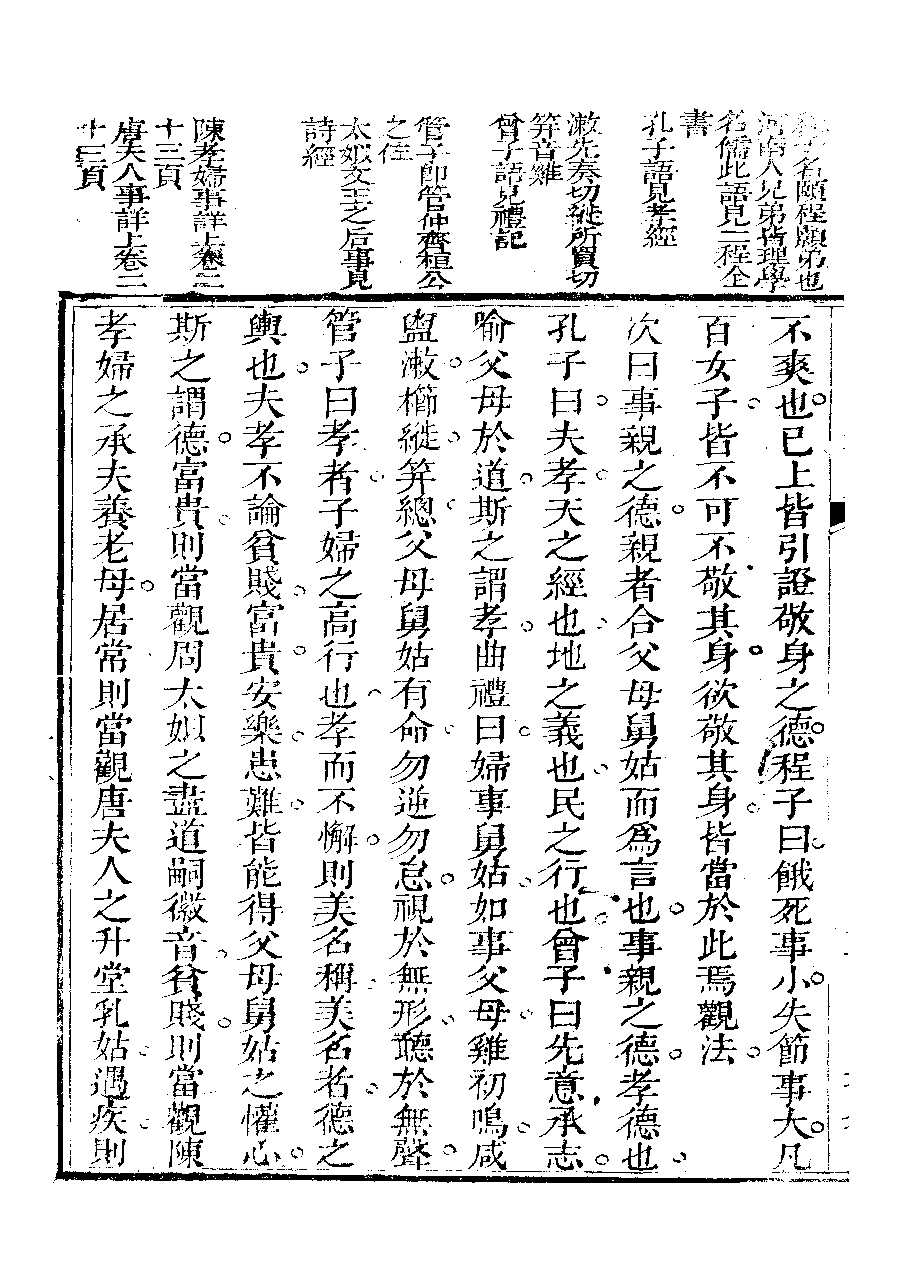 程子名頤程顥弟也
河南人兄弟皆理學
名儒此語見二程全
書
孔子語見孝經
漱先奏切縰所買切
笄音雞
曾子語見禮記
管子即管仲齊桓公
之佐
太姒文王之后事見
詩經
陳孝婦事詳上卷二
十三頁
唐夫人事詳上卷二
十三頁
不爽也已上皆引證敬身之德程子曰餓死事小失節事大凡
百女子皆不可不敬其身欲敬其身皆當於此焉觀法
次曰事親之德親者合父母舅姑而爲言也事親之德孝德也
孔子曰夫孝天之經也地之義也民之行也曾子曰先意承志
喻父母於道斯之謂孝曲禮曰婦事舅姑如事父母雞初鳴咸
盥漱櫛縰笄總父母舅姑有命勿逆勿怠視於無形聽於無聲
管子曰孝者子婦之高行也孝而不懈則美名稱美名者德之
輿也夫孝不論貧賤富貴安樂患難皆能得父母舅姑之懽心
斯之謂德富貴則當觀周太姒之盡道嗣徽音貧賤則當觀陳
孝婦之承夫養老母居常則當觀唐夫人之升堂乳姑遇疾則